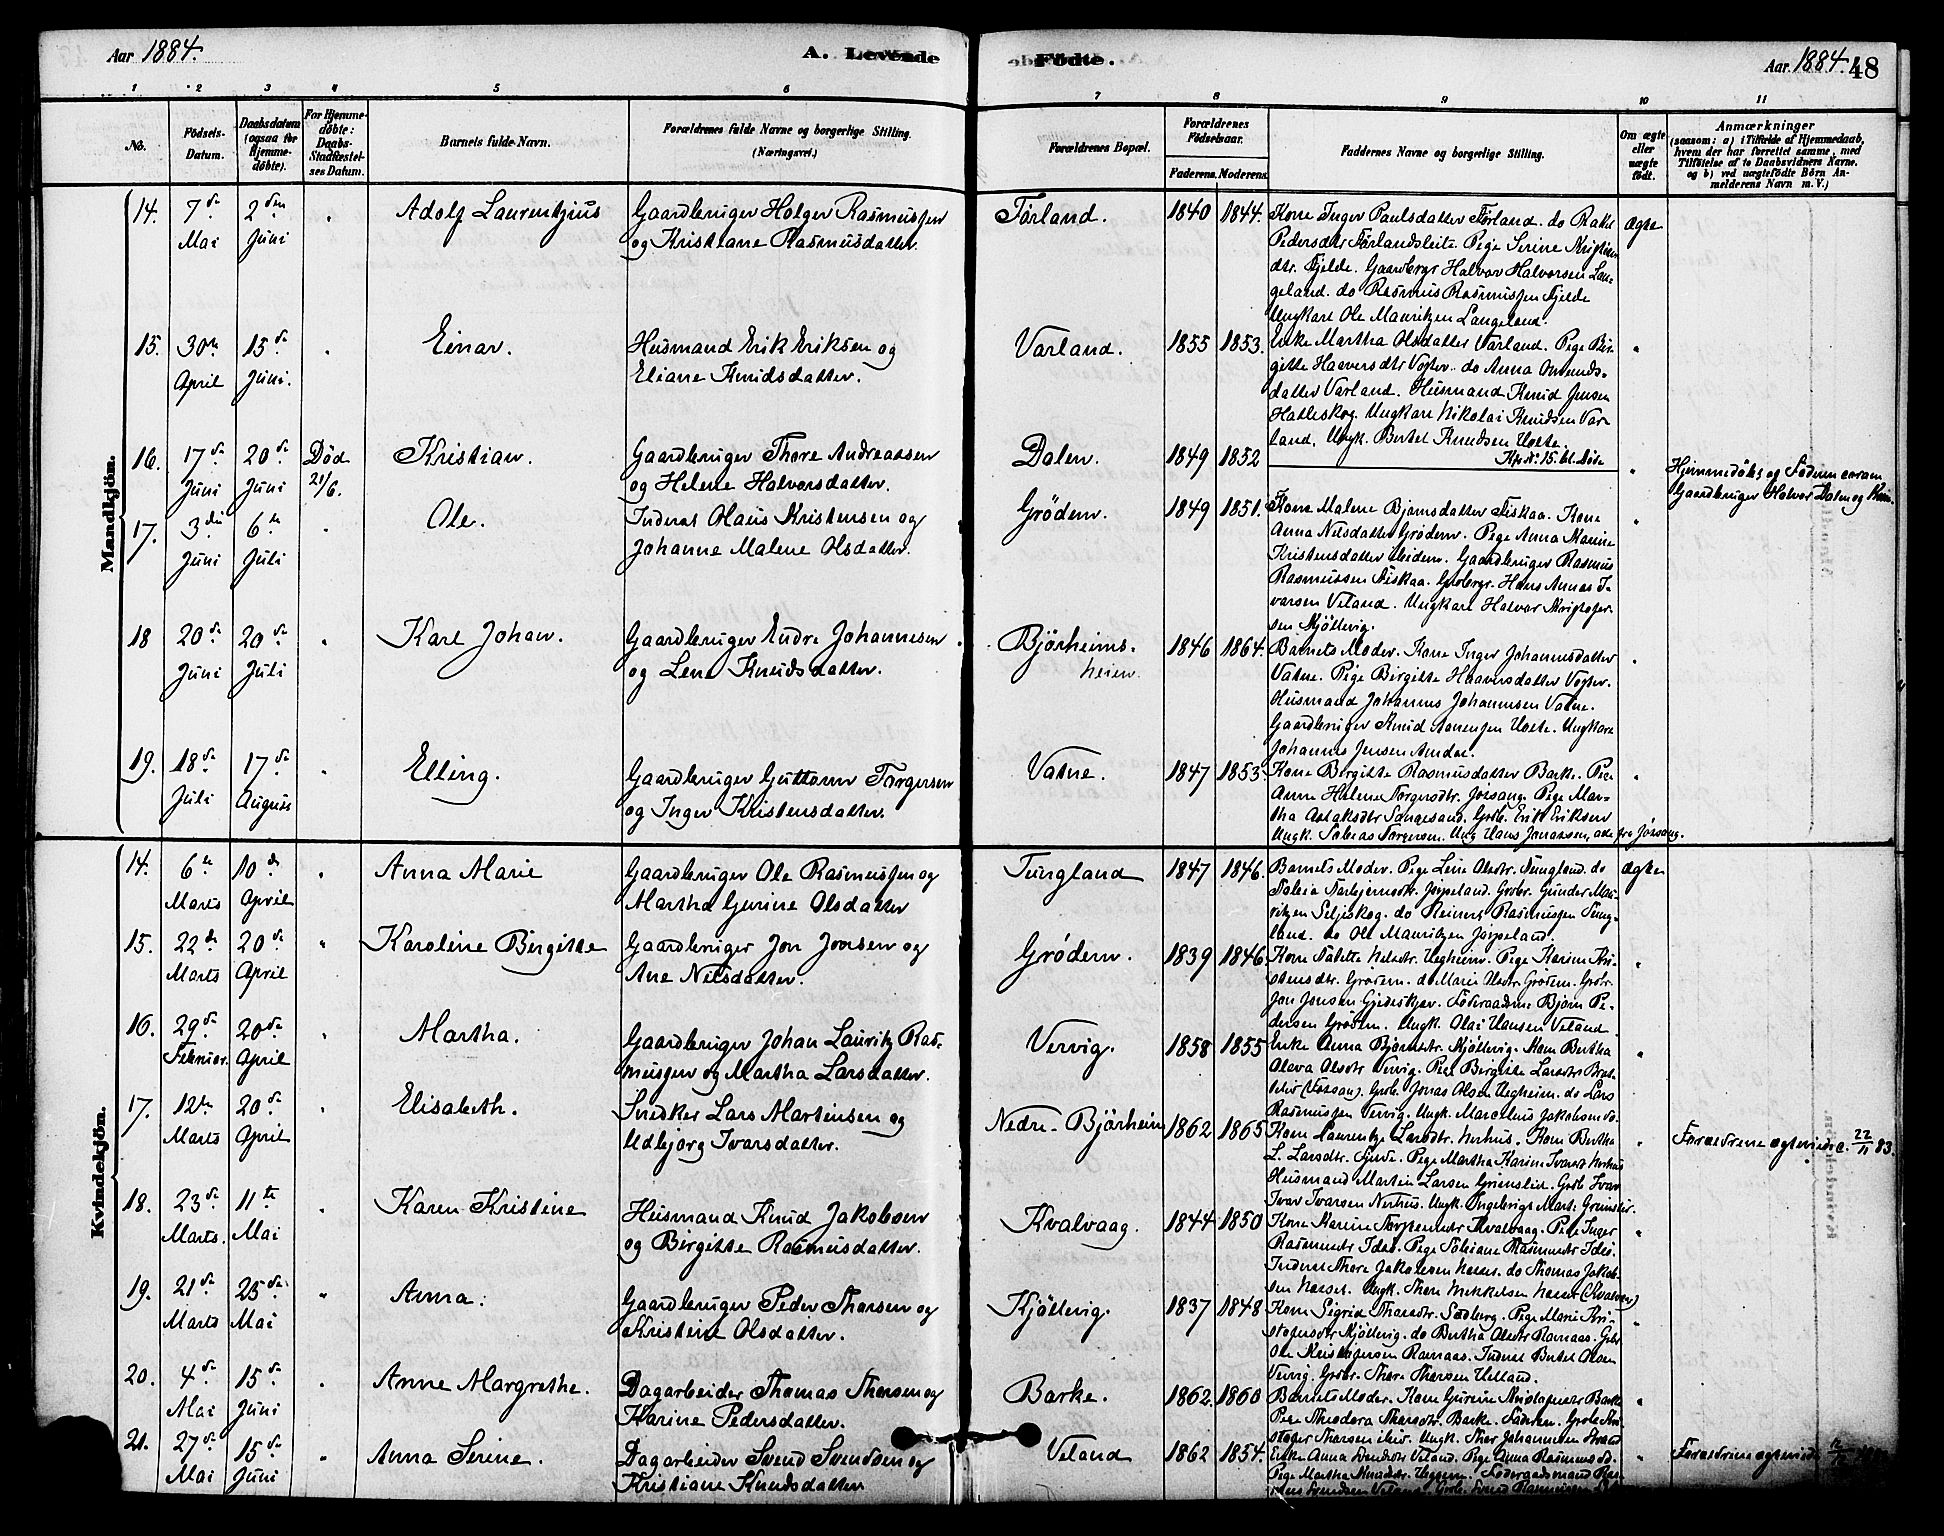 Aar 1884.
A. Levende
Födte.
Aar 1884.
48
1 2 3 4 5 6 7 8 9 10 11
No.
Födsels-Datum.
Daabsdatum (ogsaa for Hjemme-döbte).
For Hjemme-döbte: Daabs-Stadfæstelses Datum.
Barnets fulde Navn.
Forældrenes fulde Navne og borgerlige Stilling.
(Næringsvei.)
Forældrenes Bopæl.
Forældrenes Födselsaar.
Faderens. Moderens.
Faddernes Navne og borgerlige Stilling.
Om ægte eller uægte födt.
Anmærkninger
(saasom: a) i Tilfælde af Hjemmedaab, hvem der har forrettet samme, med Tilföielse af to Daabsvidners Navne, og b) ved uægtefödte Börn Anmelderens Navn m. V.)
Mandkjön.
14. 7de Mai 2den Juni " Adolf Laurentzius
Gaardbruger Holger Rasmussen
og Kristiane Rasmusdatter.
Førland. 1840 1844.
Kone Inger Paulsdatter Førland. do Rakel
Pedersdtr Førlandsleite. Pige Serine Kristian
dtr. Fjelde. Gaardbrgr Halvor Halvorsen Lan-
geland. do Rasmus Rasmussen Fjelde
Ungkarl Ole Mauritzen Langeland.
Ægte
15. 30te April 15de Juni. " Einar.
Husmand Erik Eriksen og
Eliane Knudsdatter.
Varland. 1855 1853.
Enke Martha Olsdatter Varland. Pige Bir-
gitte Haaversdtr Vogter. do Anna Omunds-
datter Varland. Husmand Knud Jensen
Hatleskog. Ungkarl Nikolai Knudsen Var-
land. Ungk. Bertel Knudsen
"
16. 17de Juni 20de Juni Död 21/6. Kristian.
Gaardbruger Thore Andreassen
og Helene Halvorsdatter.
Dalen. 1849 1852
"
Hjemmedøbt og Faderen coram
Gaardbruger Halvor Dalen og
17. 3die Juni 6te Juli " Ole.
Inderst Olaus Kristensen og
Johanne Malene Olsdatter.
Grödem. 1849 1851.
Kone Malene Bjørnsdatter Fiskaa. Kone
Anna Nilsdatter Grødem. Pige Anna Marine
Kristensdatter Gaardbruger Rasmus
Rasmussen Fiskaa. Grdbrgr. Hans Annas I-
varsen Veland. Ungkarl Halvor Kristofer-
sen Kjöllevig.
"
18 20de Juni 20de Juli " Karl Johan.
Gaardbruger Endre Johannesen
og Lene Knudsdatter.
Bjørheims-
heien. 1846 1864.
Barnets Moder. Kone Inger Johannesdatter
Vatne. Pige Birgitte Haaversdatter Vogter.
Husmand Johannes Johannesen Vatne.
Gaardbruger Knud Ungkarl
Johannes Jensen Amdal.
"
19. 18de Juli 17de August " Elling.
Gaardbruger Guttorm Torgersen
og Inger Kristensdatter.
Vatne. 1847 1853
Kone Birgitte Rasmusdatter Barke. Pige
Anne Helene Torgersdtr. Jøssang. Pige Mar-
tha Grdb. Erik Eriksen
Ungk. Tobias Torgersen. Ung Hans Jonassen, alle fra Jøssang.
"
Kvindekjön.
14. 6te Marts 10de April " Anna Marie
Gaardbruger Ole Rasmussen og
Martha Gurine Olsdatter
Tungland 1847 1846.
Barnets Moder. Pige Line Olsdtr. Tungland. do
Taleia Torbjørnsdtr. Jørpeland. Grdbr. Gunder Mau-
ritzen Seljeskog. do Reinert Rasmussen Tung-
land. do Ole Mauritzen Jørpeland.
Ægte
15. 22de Marts 20de April " Karoline Birgitte
Gaardbruger Jon Jonsen og
Ane Nilsdatter.
Grödem. 1839 1846.
Kone Pige Karine Kri-
stensdtr. Grødem. do Marie Olsdtr Grødem. Grdbr.
Jon Jonsen Bjørn Pe-
dersen Grødem. Ungk. Olai Hansen Veland.
"
16. 29de Februar. 20de April " Martha.
Gaardbruger Johan Lauritz Ras-
mussen og Martha Larsdatter.
Vervig. 1858 1855
Enke Anna Bjørnsdtr. Kjöllevig. Kone Bertha
Olava Olsdtr Vervig. Pige Birgitte Larsdtr
(Fossan). Grdb. Jonas Olsen Uegheim. do Lars
Rasmussen Vervig. Ungk. Marcelius Jakobsen do.
"
17. 12te Marts 20de April " Elisabeth.
Snedker Lars Martinsen og
Udbjørg Ivarsdatter.
Nedre-Björheim 1862 1865
Kone Laurentze Larsdtr. Nerhus. Kone Bertha
L. Larsdtr. Pige Martha Karine Ivarsd. Nerhus
Husmand Martin Larsen Grimslid. Grdb Ivar
Ivar Ivarsen Nerhus. Ungk. Ingebrigt Mart. Grimslid.
"
Forældrene ægteviede 22/11 83.
18. 23de Marts. 11te Mai " Karen Kristine
Husmand Knud Jakobsen
og Birgitte Rasmusdatter.
Kvalvaag. 1844 1850
Kone Karine Torstensdtr Kvalvaag. Pige Inger
Rasmusdtr Idsö. Pige Rasmusdtr Idsö.
Inderst Thore Jakobsen do Thomas Jakob-
sen Ungk. Thore Mikkelsen
"
19. 21de Marts 25de Mai " Anna.
Gaardbruger Peder Thorsen og
Kristine Olsdatter.
Kjöllevig. 1837 1848
Kone Sigrid Thorsdtr. Sedberg. Pige Marie Kri-
stofersdtr Kjöllevig. do Bertha Olsdtr Ramsaas. Grdbr
Ole Kristofersen Ramsaas. Inderst Bertel Olsen
Vervig. Grdbr. Thore Thorsen Helland.
"
20. 4de Mai 15de Juni " Anne Margrethe.
Dagarbeider Thomas Thorsen og
Karine Pedersdatter.
Barke. 1862. 1860
Barnets Moder. Kone Gurine Kristofersdtr Barke
Pige Theodora Thorsdtr. Barke. Faderen. Grdb. Kri-
stofer Thorsen Ungk. Thor Johannesen
"
21. 27de Mai 15de Juni " Anna Serine.
Dagarbeider Svend Svendsen og
Kristiane Knudsdatter
Veland 1862 1854.
Enke Anna Svendsdtr Veland. Pige Anna Rasmusdtr do.
Pige Martha Knudsdtr. Föderaadsmand Ras-
mus Svendsen Veland. Grdb. Svend Rasmussen
"
Forældrene ægteviede